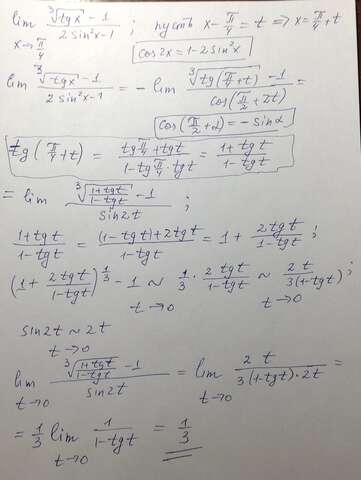 lim ∛(tg x) - 1 / 2 sin²x - 1 ; пусть x - π/4 = t ⇒ x = π/4 + t
x→π/4
cos 2x = 1 - 2 sin²x
lim ∛(tg x) - 1 / 2 sin²x - 1 = - lim ∛(tg(π/4 + t)) - 1 / cos(π/2 + 2t) =
cos(π/2 + α) = - sin α
tg(π/4 + t) = tg π/4 + tg t / 1 - tg π/4 · tg t = 1 + tg t / 1 - tg t
= lim ∛(1 + tg t / 1 - tg t) - 1 / sin 2t ;
1 + tg t / 1 - tg t = (1 - tg t) + 2 tg t / 1 - tg t = 1 + 2 tg t / 1 - tg t ;
(1 + 2 tg t / 1 - tg t)^(1/3) - 1 ~ 1/3 · 2 tg t / 1 - tg t ~ 2 t / 3(1 - tg t) ;
t→0 t→0
sin 2t ~ 2t
t→0
lim ∛(1 + tg t / 1 - tg t) - 1 / sin 2t = lim 2 t / 3(1 - tg t) · 2t =
t→0 t→0
= 1/3 lim 1 / 1 - tg t = 1/3
t→0